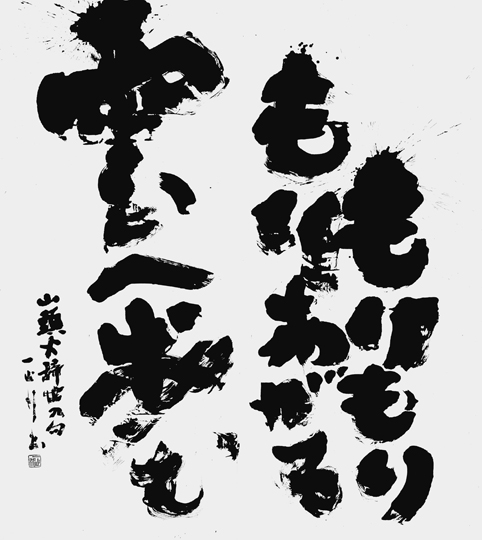 もりもり
も理あがる
雲へ歩む
山頭火辞世の句